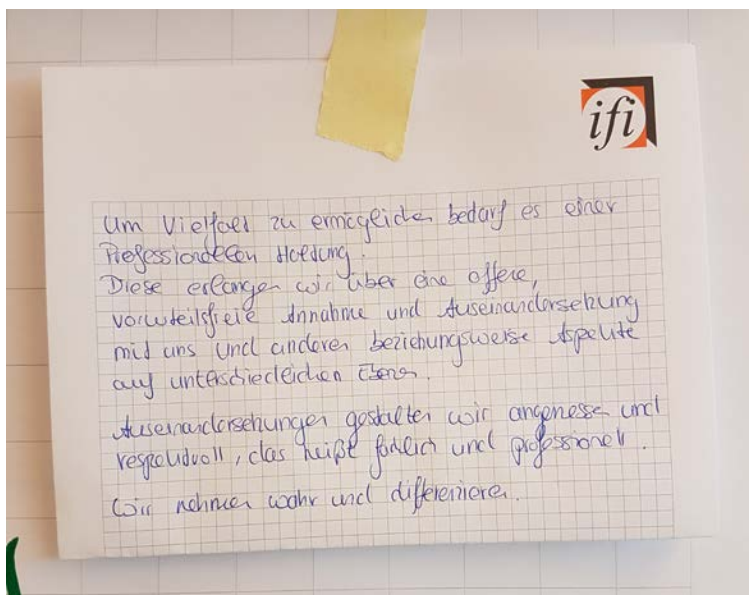 ifi
Um Vielfalt zu ermöglichen bedarf es einer
Professionellen Haltung.
Diese erlangen wir über eine offene,
vorurteilsfreie Annahme und Auseinandersetzung
mit uns und anderen beziehungsweise Aspekte
auf unterschiedlichen Ebenen.
Auseinandersetzungen gestalten wir angemessen und
respektvoll, das heißt und professionell.
Wir nehmen wahr und differenzieren.